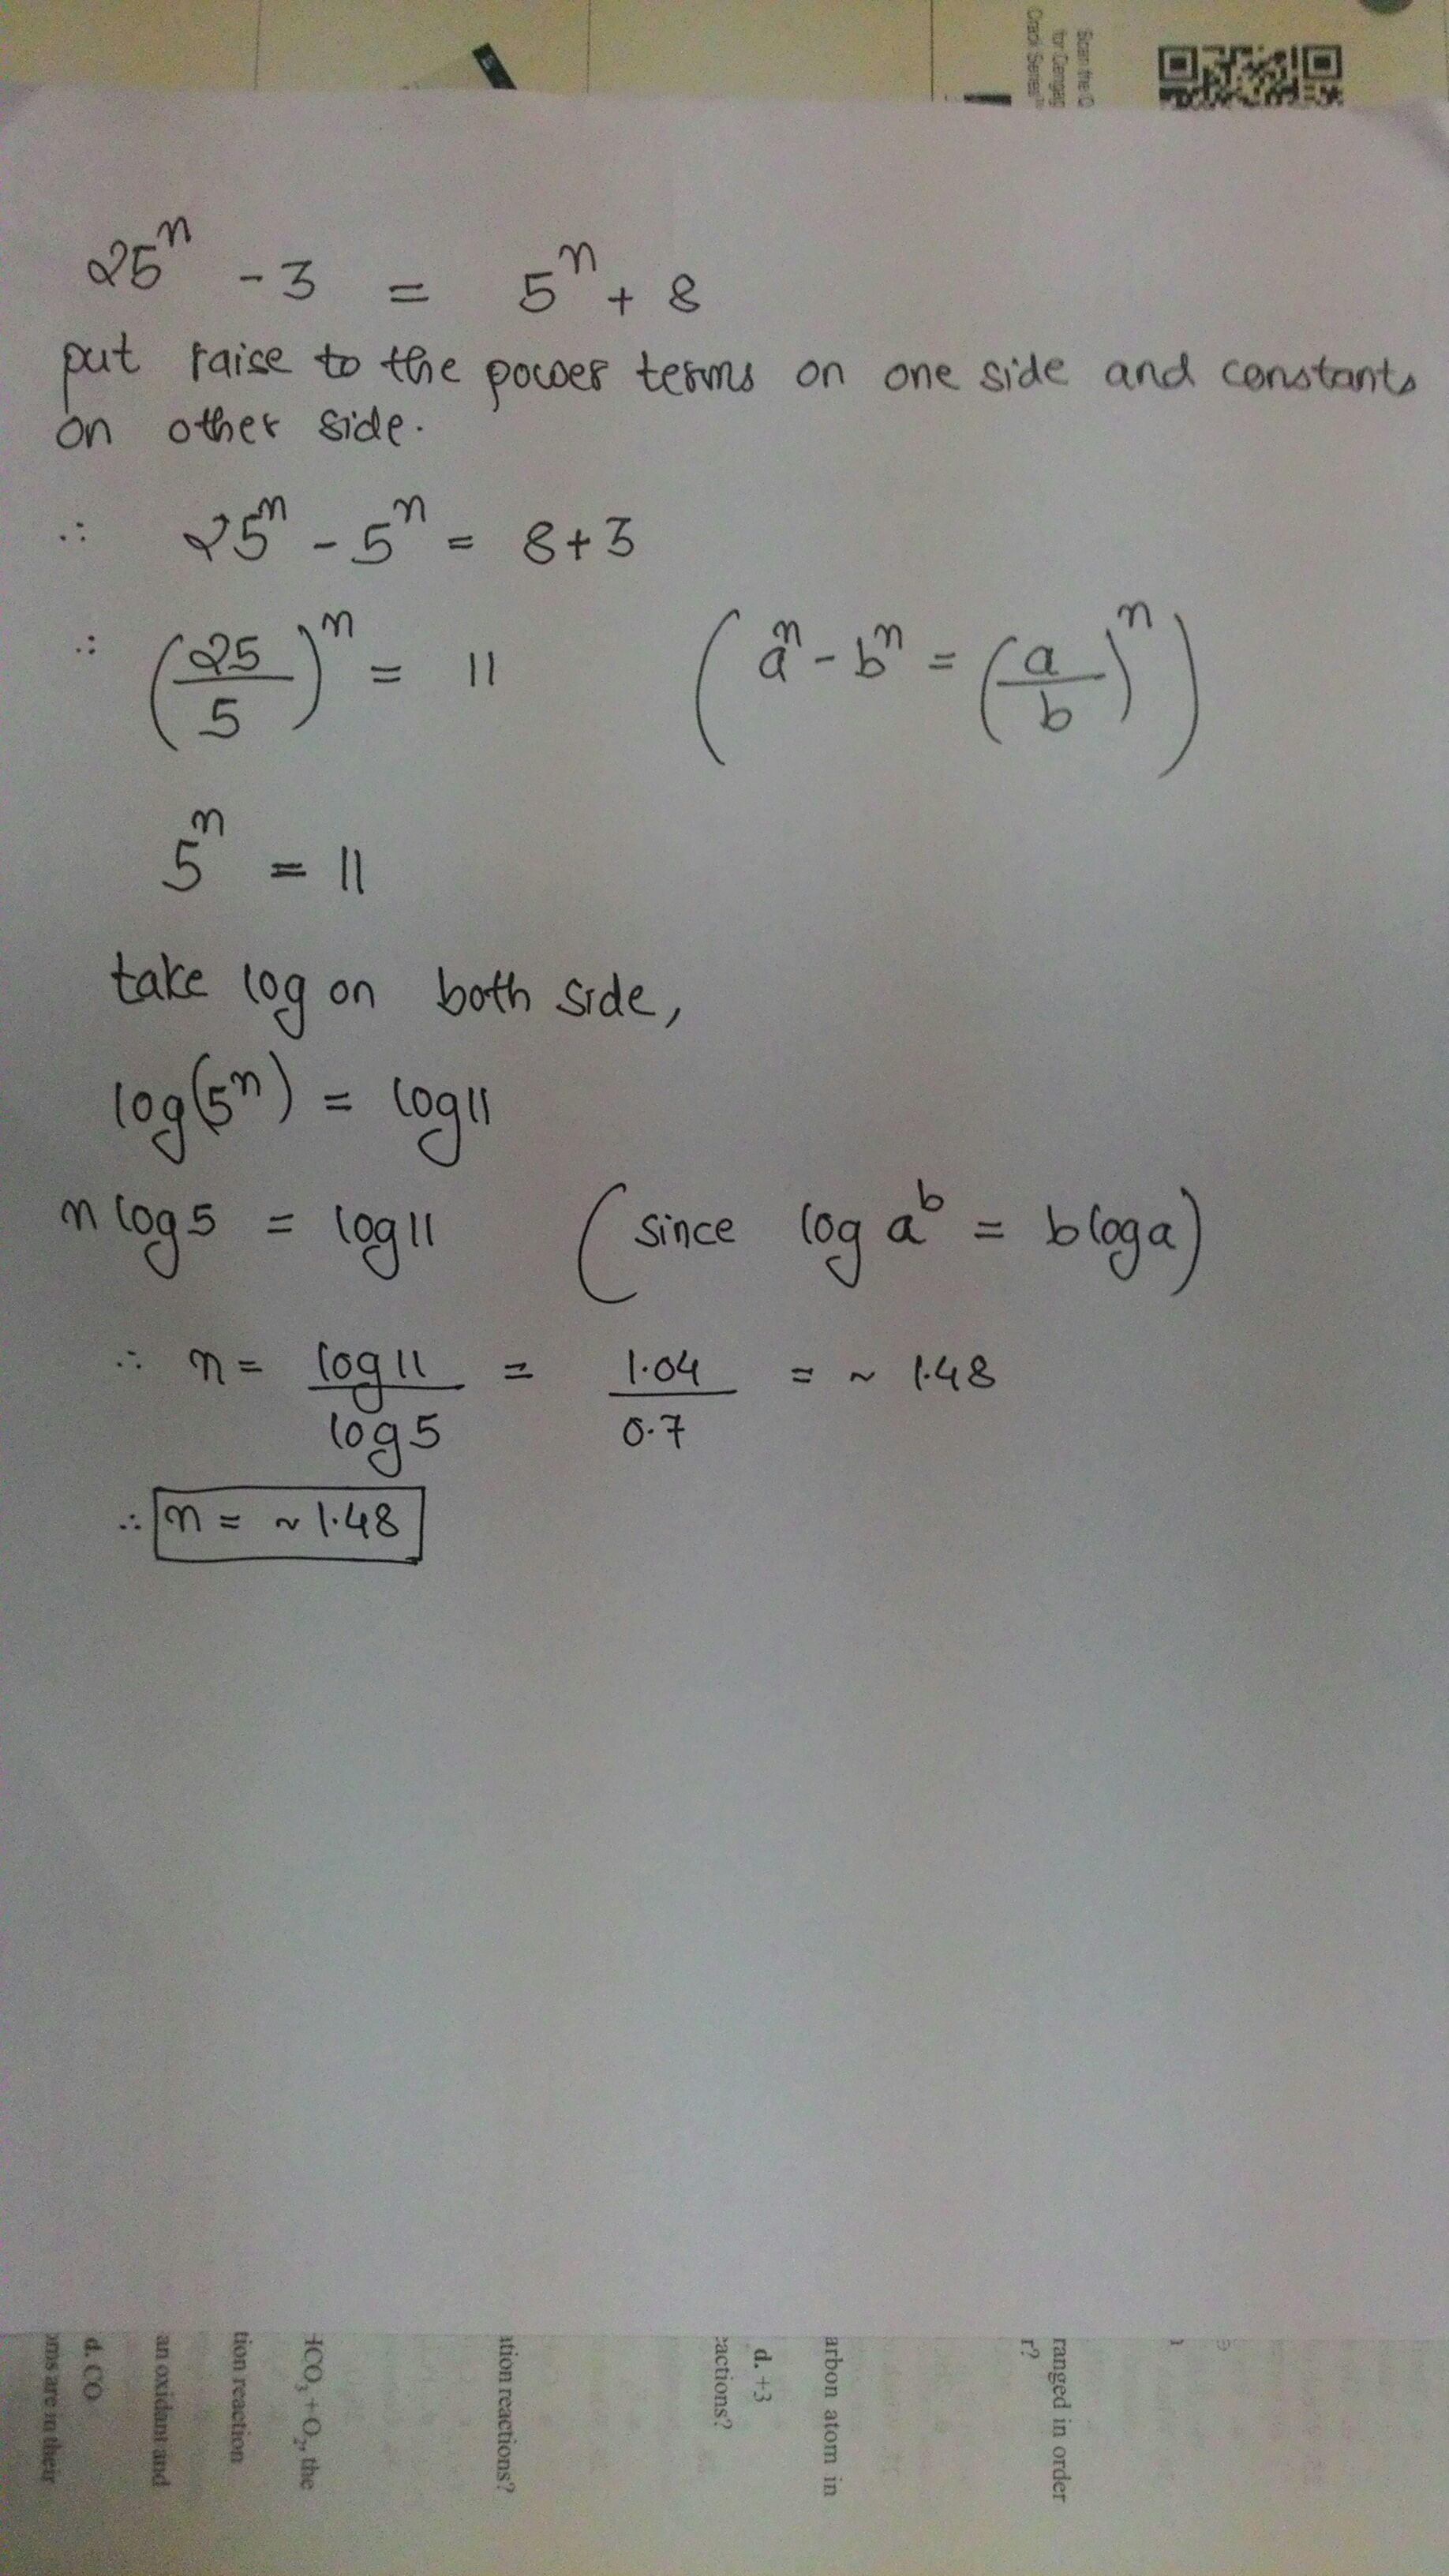 Scan the Q
for Cengag
Crack Series
25ⁿ - 3 = 5ⁿ + 8
put raise to the power terms on one side and constants
on other side.
∴ 25ⁿ - 5ⁿ = 8+3
∴ (25/5)ⁿ = 11 (aⁿ - bⁿ = (a/b)ⁿ)
5ⁿ = 11
take log on both side,
log(5ⁿ) = log11
n log5 = log11 (since log aᵇ = b log a)
∴ n = log11/log5 = 1.04/0.7 = ~ 1.48
∴ n = ~ 1.48
ranged in order
r?
arbon atom in
d. +3
eactions?
ation reactions?
HCO₃ + O₂, the
tion reaction
an oxidant and
d. CO
oms are in their